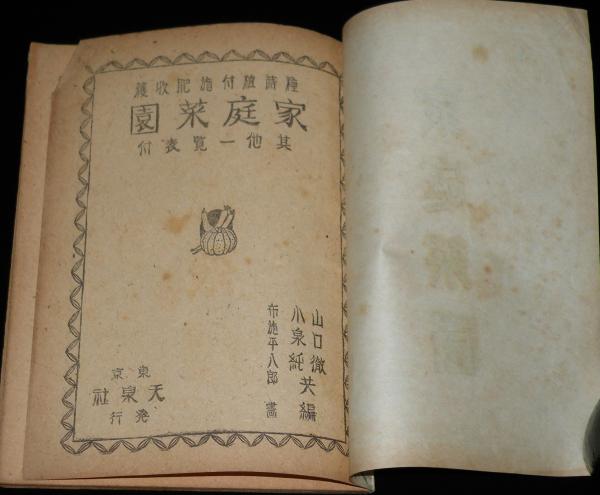 種蒔植付施肥收穫
家庭菜園
其他一覧表付
山口徹
小泉純共編
布施平八郎 畫
東京
天泉社
発行